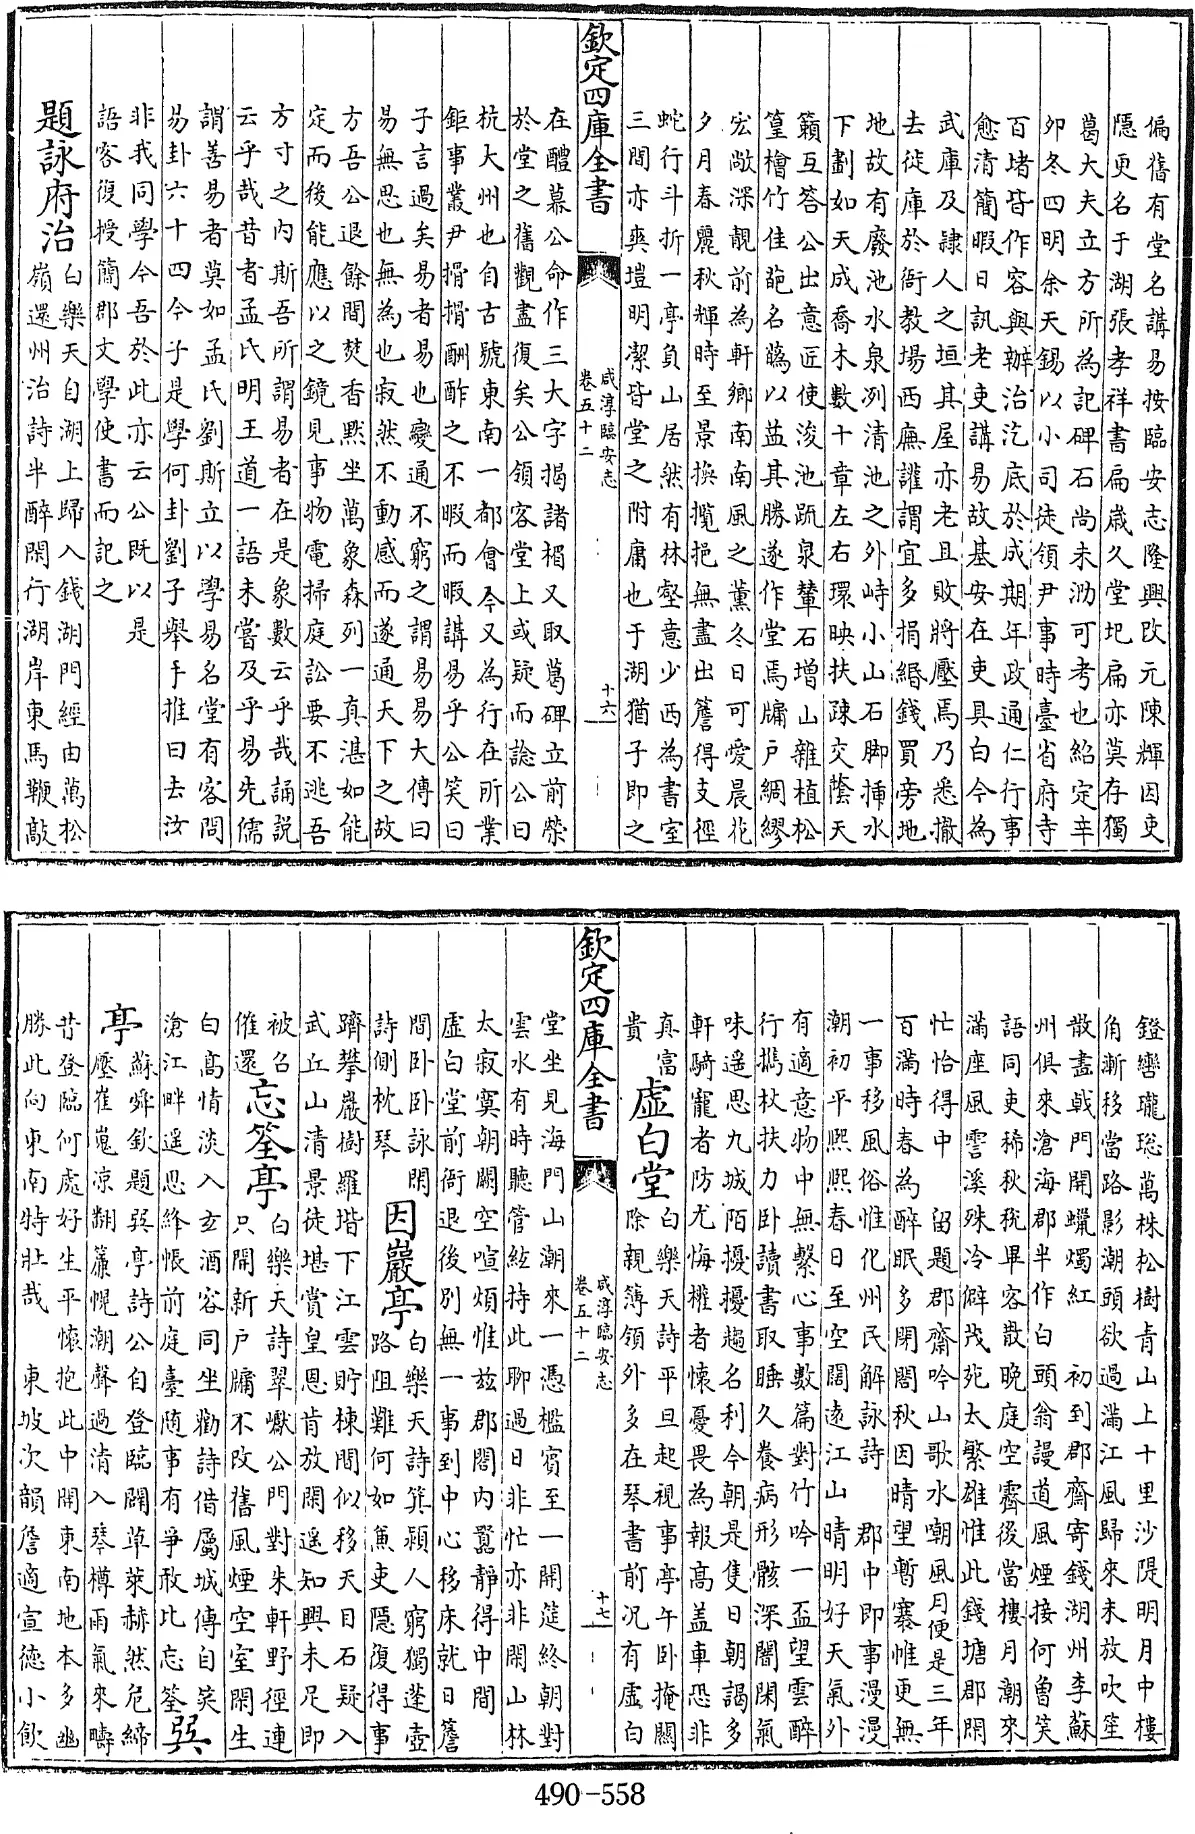 偏舊有堂名講易按臨安志隆興改元陳輝因吏
隱更名于湖張孝祥書扁歲久堂圮扁亦莫存獨
葛大夫立方所為記碑石尚未泐可考也紹定辛
卯冬四明余天錫以小司徒領尹事時臺省府寺
百堵皆作容與辦治汔底於成期年政通仁行事
愈清簡暇日訊老吏講易故基安在吏具白今為
武庫及隸人之垣其屋亦老且敗將壓焉乃悉撤
去徙庫於衙教場西廡讙謂宜多捐緡錢買旁地
地故有廢池水泉冽清池之外峙小山石脚揷水
下劃如天成喬木數十章左右環映扶疎交蔭天
籟互答公出意匠使浚池疏泉輦石增山雜植松
篁檜竹佳葩名蘤以益其勝遂作堂焉牖戶綢繆
宏敞深靚前為軒鄉南南風之薰冬日可愛晨花
夕月春麗秋輝時至景換攬挹無盡出簷得支徑
蛇行斗折一亭負山居然有林壑意少西為書室
三間亦爽塏明潔皆堂之附庸也于湖猶子即之
欽定四庫全書
咸淳臨安志
卷五十二
十六
在醴慕公命作三大字揭諸楣又取葛碑立前榮
於堂之舊觀盡復矣公領客堂上或疑而諗公曰
杭大州也自古號東南一都會今又為行在所業
鉅事叢尹搰搰酬酢之不暇而暇講易乎公笑曰
子言過矣易者易也變通不窮之謂易易大傳曰
易無思也無為也寂然不動感而遂通天下之故
方吾公退餘閒焚香黙坐萬象森列一真湛如能
定而後能應以之鏡見事物電掃庭訟要不逃吾
方寸之内斯吾所謂易者在是象數云乎哉誦說
云乎哉昔者孟氏明王道一語未嘗及乎易先儒
謂善易者莫如孟氏劉斯立以學易名堂有客問
易卦六十四今子是學何卦劉子舉手推曰去汝
非我同學今吾於此亦云公既以是
語客復授簡郡文學使書而記之
題詠府治
白樂天自湖上歸入錢湖門經由萬松
嶺還州治詩半醉閑行湖岸東馬鞭敲
鐙轡瓏璁萬株松樹青山上十里沙隄明月中樓
角漸移當路影潮頭欲過滿江風歸來未放吹笙
散盡㦸門開蠟燭紅　初到郡齋寄錢湖州李蘇
州俱來滄海郡半作白頭翁謾道風煙接何曾笑
語同吏稀秋稅畢客散晚庭空霽後當樓月潮來
滿座風霅溪殊冷僻茂苑太繁雄惟此錢塘郡閑
忙恰得中　留題郡齋吟山歌水嘲風月便是三年
百滿時春為醉眠多閉閤秋因晴望暫褰帷更無
一事移風俗惟化州民解詠詩　郡中即事漫漫
潮初平熙熙春日至空闊遠江山晴明好天氣外
有適意物中無繫心事數篇對竹吟一盃望雲醉
行攜杖扶力卧讀書取睡久養病形骸深闇閑氣
味遥思九城陌擾擾趨名利今朝是隻日朝謁多
軒騎寵者防尤悔權者懷憂畏為報髙盖車恐非
真富
貴
虛白堂
白樂天詩平旦起視事亭午卧掩關
除親簿領外多在琴書前况有虛白
欽定四庫全書
咸淳臨安志
卷五十二
十七
堂坐見海門山潮來一憑檻賓至一開筵終朝對
雲水有時聽管絃持此聊過日非忙亦非閑山林
太寂寞朝闕空喧煩惟兹郡閤内嚻靜得中間
虛白堂前衙退後別無一事到中心移床就日簷
間卧卧詠閑
詩側枕琴
因巖亭
白樂天詩箕潁人窮獨蓬壺
路阻難何如兼吏隱復得事
躋攀巖樹羅堦下江雲貯棟間似移天目石疑入
武丘山清景徒堪賞皇恩肯放閑遥知興未足即
被召
催還
忘筌亭
白樂天詩翠巘公門對朱軒野徑連
只開新戶牖不改舊風煙空室閑生
白髙情淡入玄酒容同坐勸詩借屬城傳自笑
滄江畔遥思絳帳前庭臺随事有爭敢比忘筌
巽
亭
蘇舜欽題巽亭詩公自登臨闢草萊赫然危締
壓崔嵬凉翻簾幌潮聲過清入琴樽雨氣來疇
昔登臨何處好生平懷抱此中開東南地本多幽
勝此向東南特壯哉　東坡次韻詹適宣德小飲
490-558